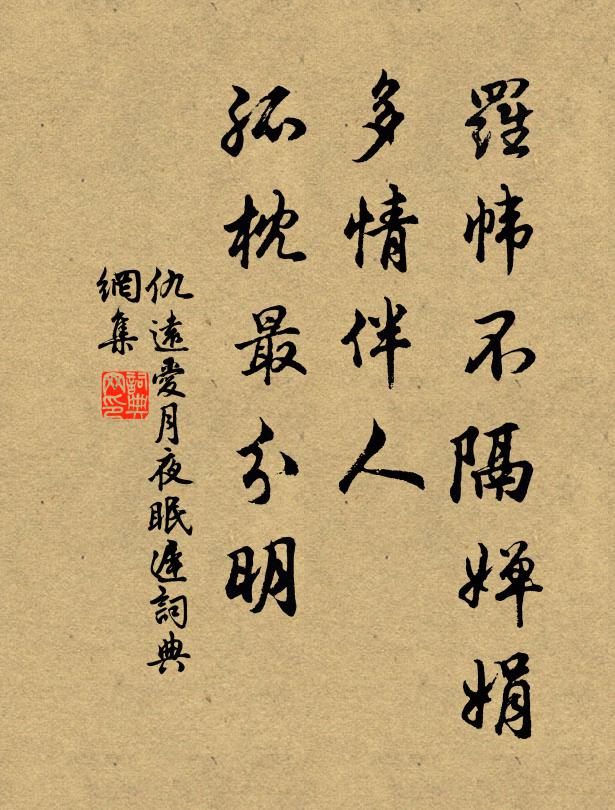 羅幃不隔嬋娟
多情伴人
孤枕最分明
仇遠愛月夜眠遲詞典
網集
詞典網印